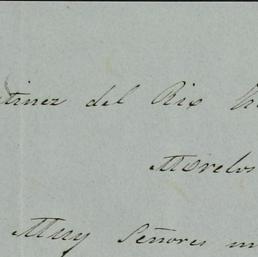 tinez del Rio H
Morelos
Muy Señores m